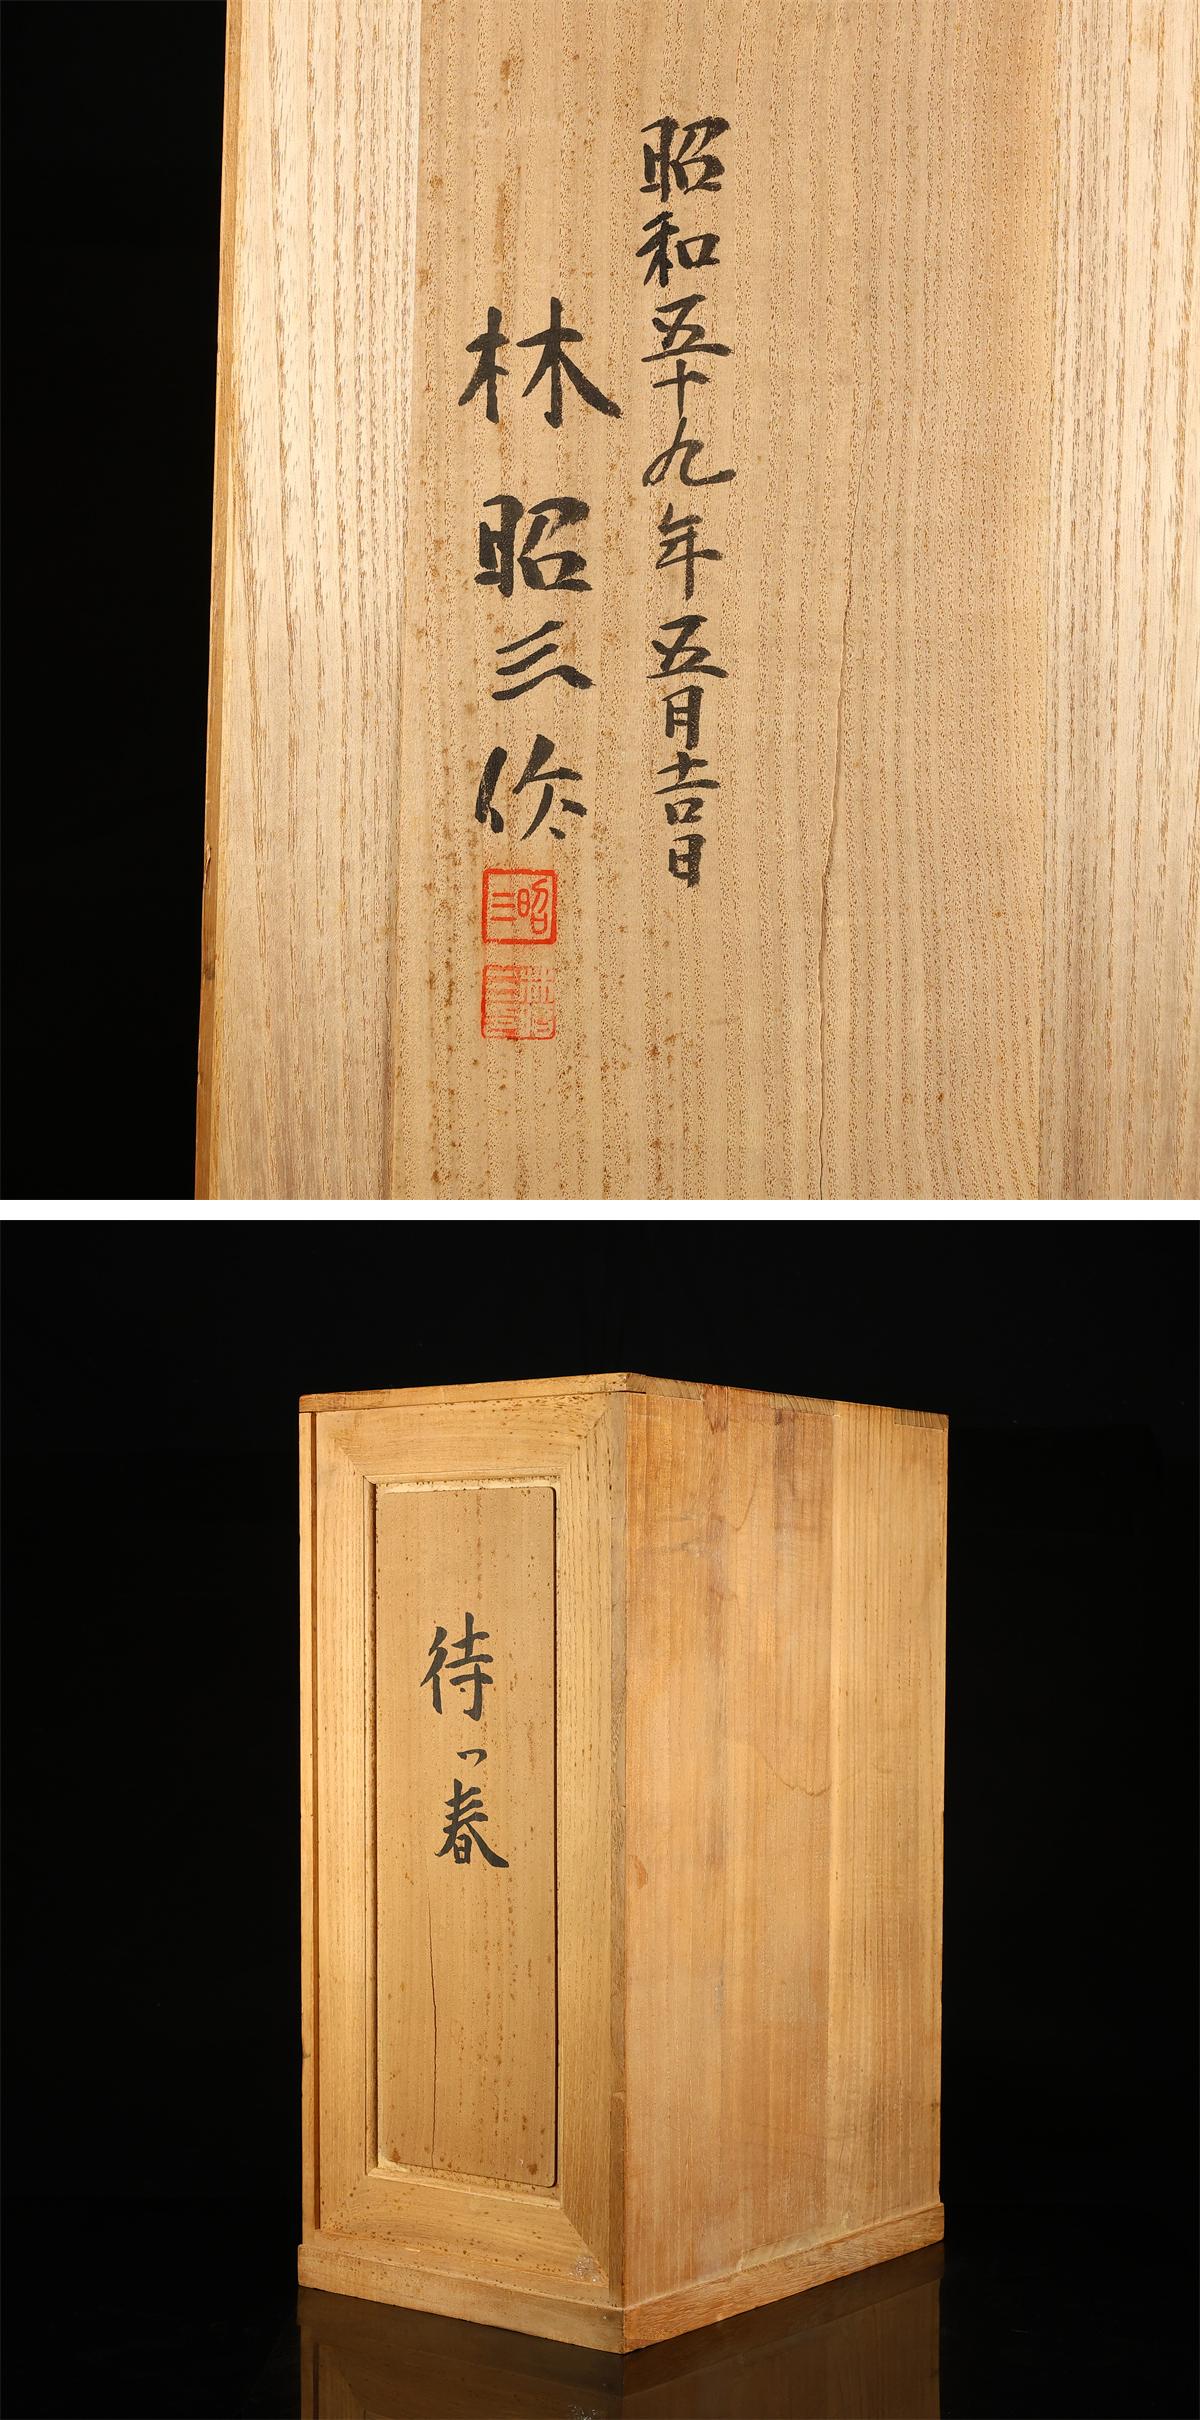 昭和五十九年五月吉日
林昭三作
昭三
待つ春